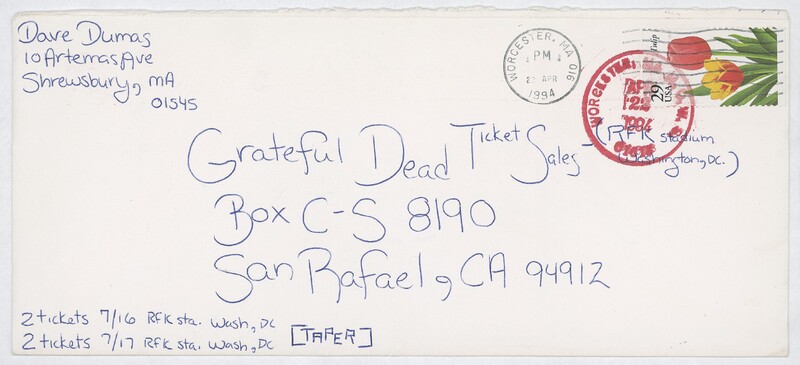 Dave Dumas
10 Artemas Ave
Shrewsbury, MA
01545
WORCESTER, MA 016
PM
1994
Tulip
29
USA
WORCESTER, MA
APR
22
1994
Grateful Dead Ticket Sales (RFK stadium
Washington, DC.)
Box C-S 8190
San Rafael, CA 94912
2 tickets 7/16 RFK sta. Wash, DC
2 tickets 7/17 RFK sta. Wash, DC [TAPER]